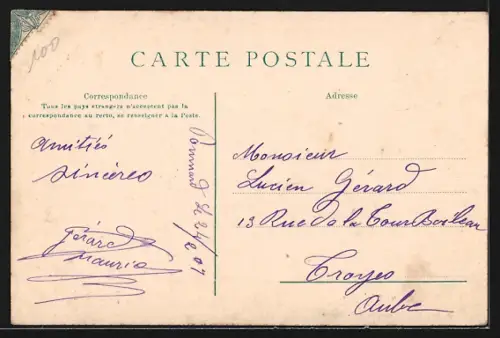 100
CARTE POSTALE
Correspondance
Tous les pays étrangers n'acceptent pas la
correspondance au recto, se renseigner à la Poste.
Adresse
Amitiés
sincères
Gérard
Maurice
Pommard le 24/8 07
Monsieur
Lucien Gérard
13 Rue de la Tour Boileau
Troyes
Aube